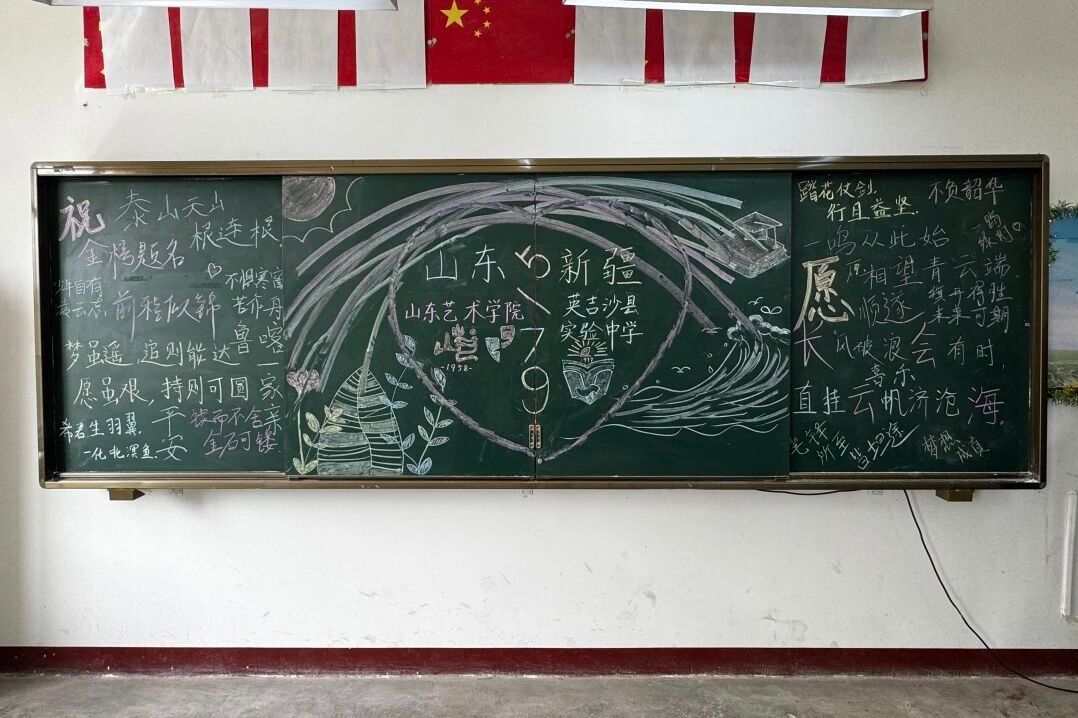 祝
泰山天山
根连根
金榜题名
不惧寒窗
苦作舟
前程似锦
鲁喀一家亲
梦虽遥，追则能达
愿虽艰，持则可圆
平安
锲而不舍
金石可镂
希君生羽翼，
一化北溟鱼。
山东
5179
新疆
山东艺术学院
-1958-
英吉沙县
实验中学
踏花仗剑，
行且益坚。
不负韶华
一鸣从此始
相望青云端。
愿
顺遂
喜乐
未来可期
长风破浪会有时，
直挂云帆济沧海。
先锋所至
皆坦途
梦想成真